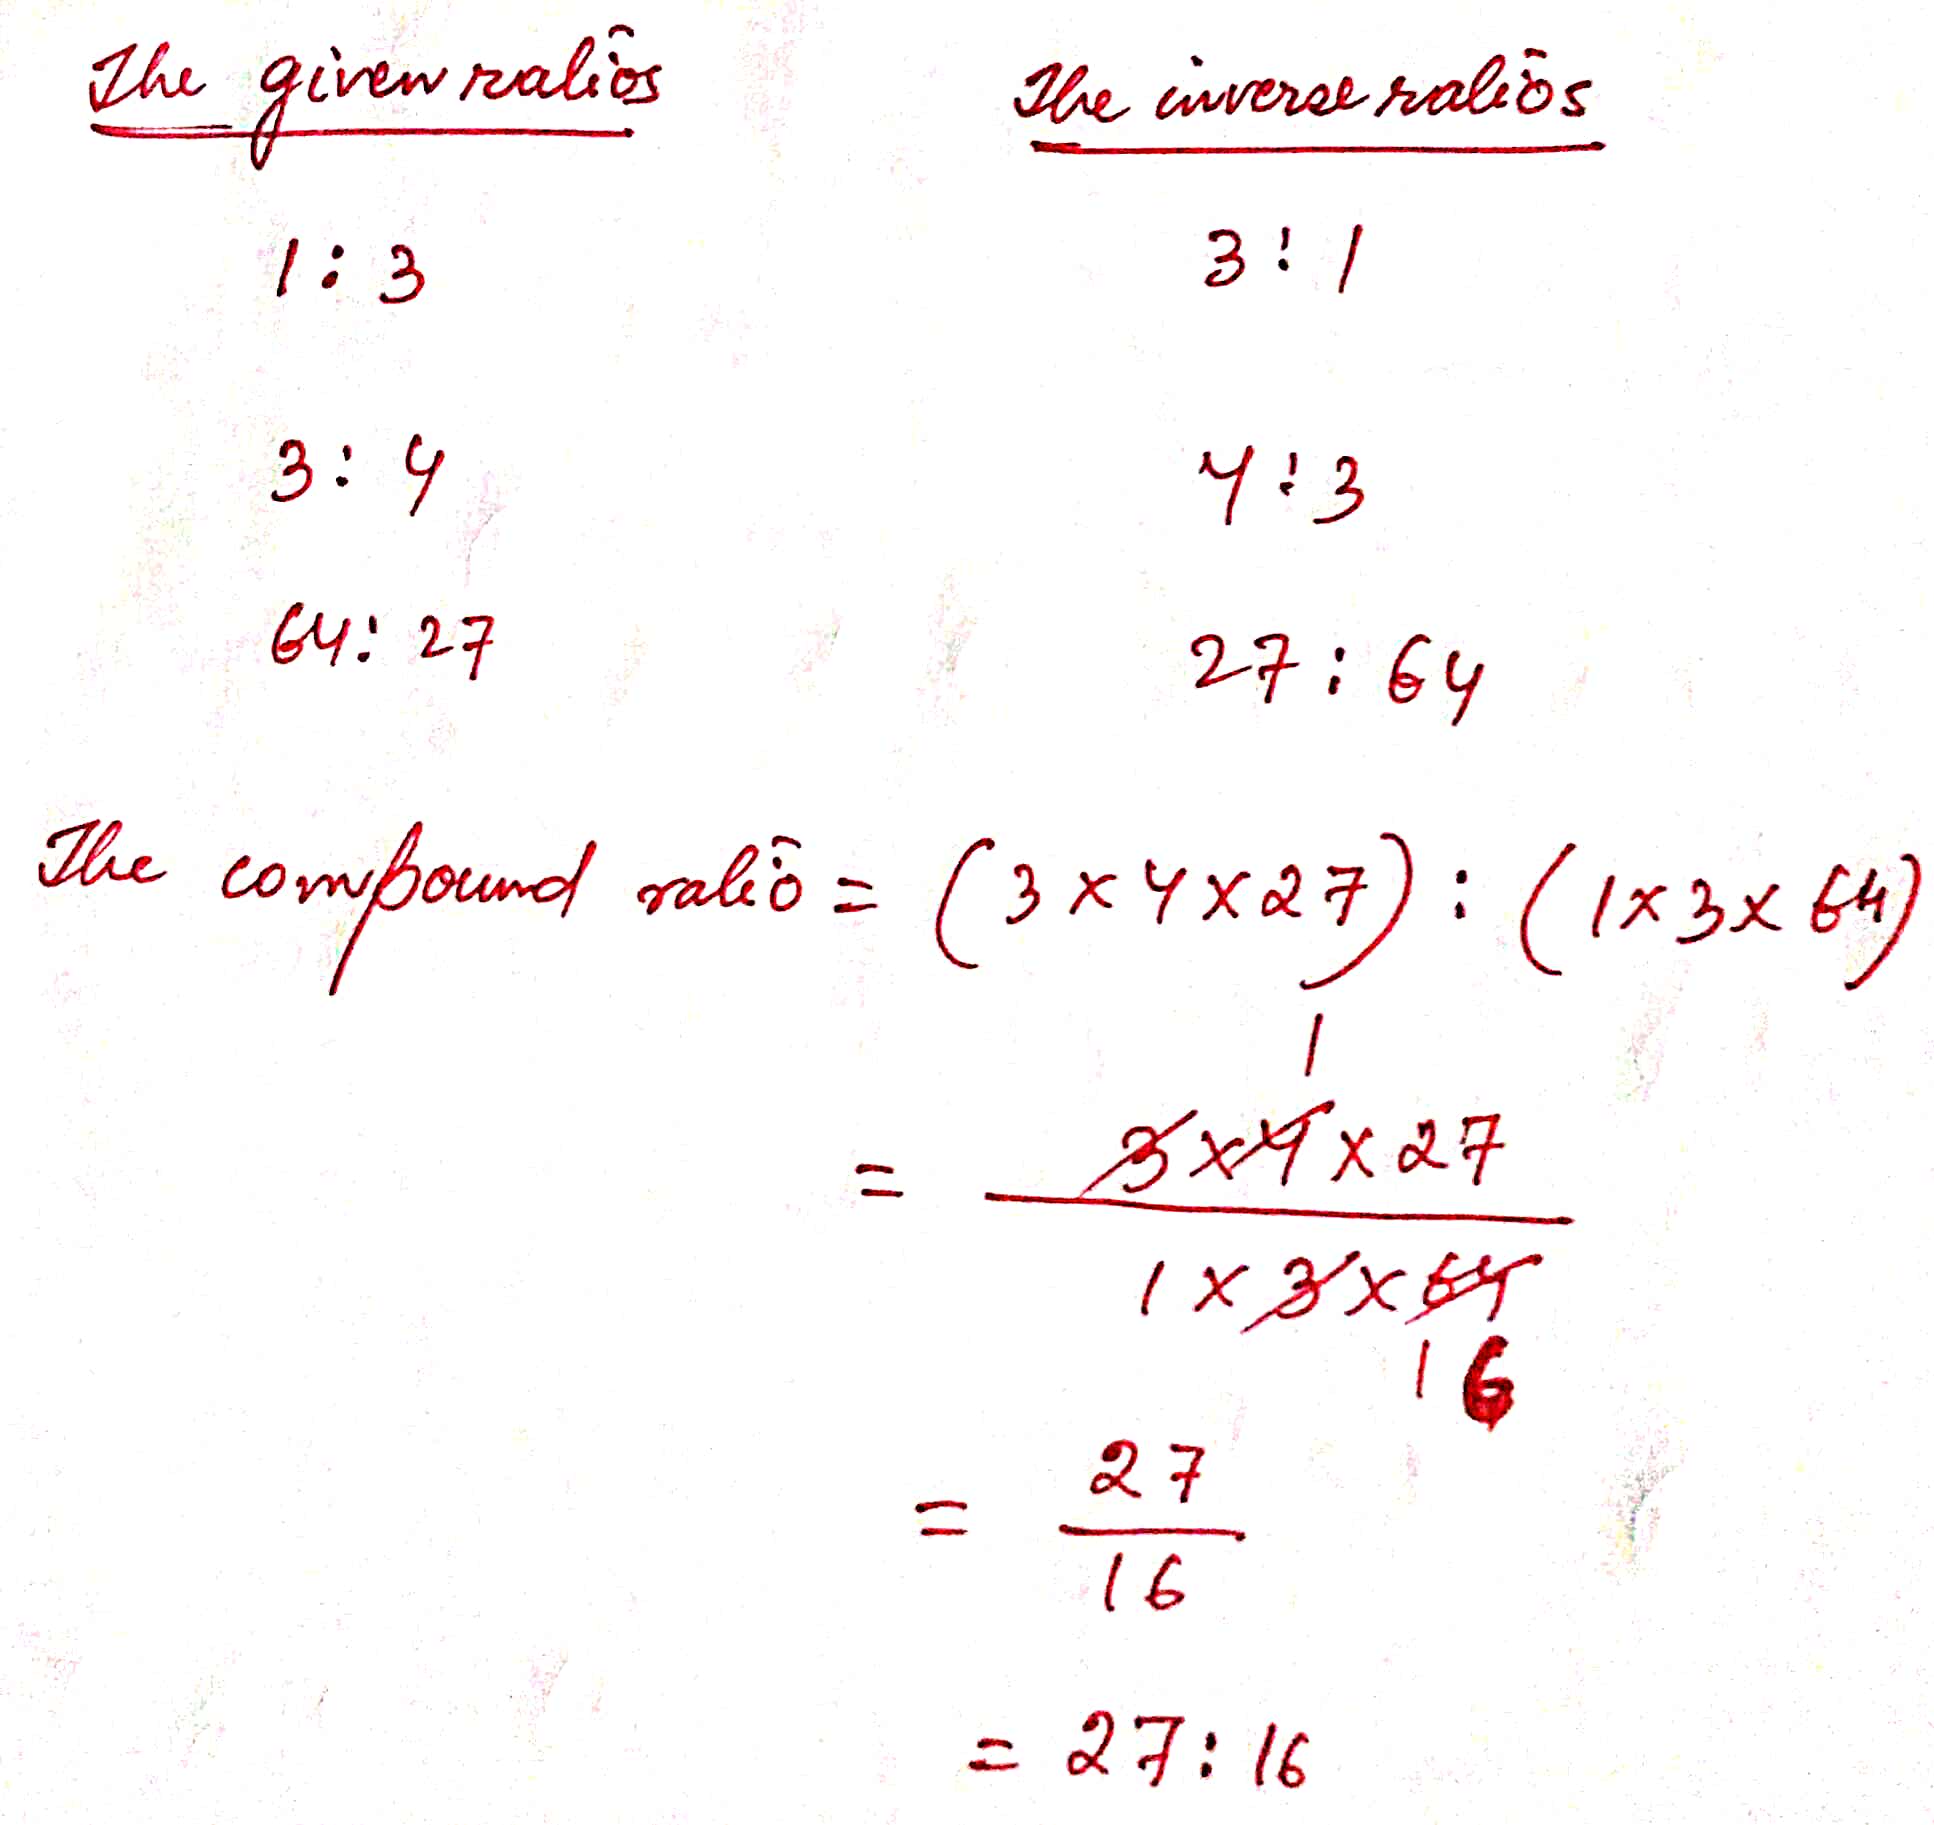 The given ratios The inverse ratios
1 : 3 3 : 1
3 : 4 4 : 3
64 : 27 27 : 64
The compound ratio = (3 × 4 × 27) : (1 × 3 × 64)
1
= 3 × 4 × 27
1 × 3 × 64
16
= 27
16
= 27 : 16